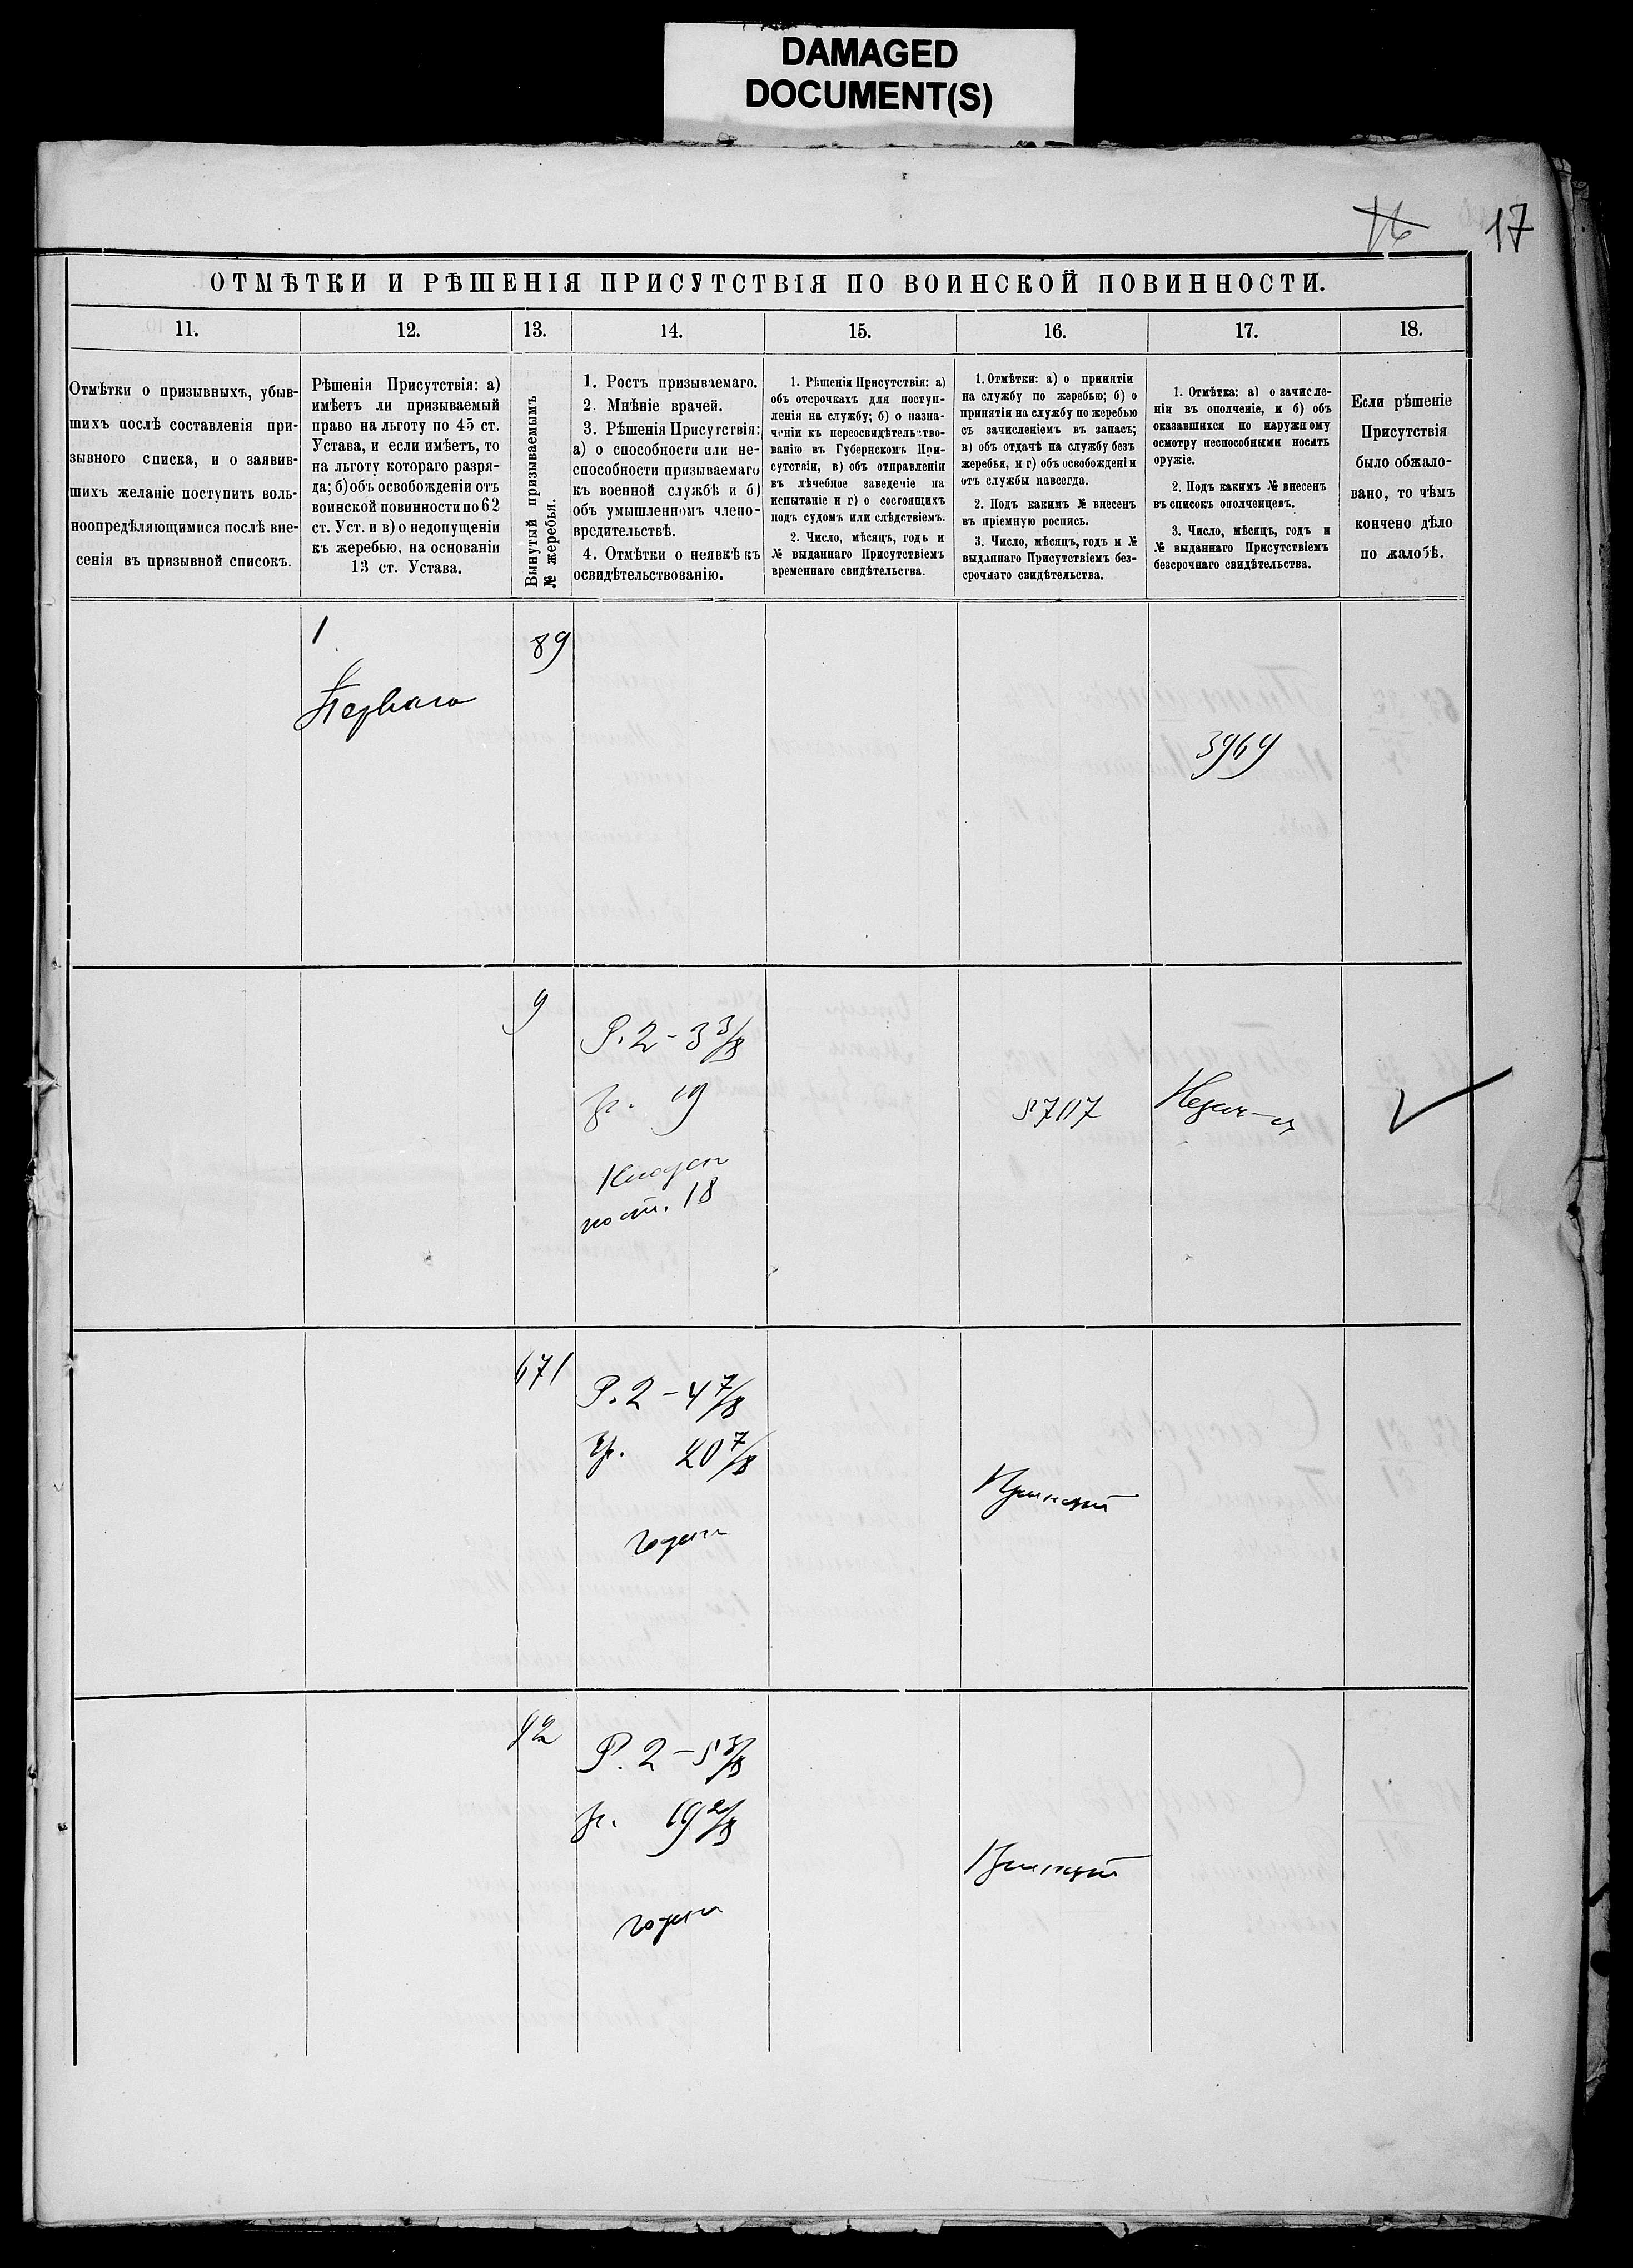 DAMAGED
DOCUMENT(S)
16 17
ОТМѢТКИ И РѢШЕНІЯ ПРИСУТСТВІЯ ПО ВОИНСКОЙ ПОВИННОСТИ.
11. 12. 13. 14. 15. 16. 17. 18.
Отмѣтки о призывныхъ, убыв-
шихъ послѣ составленія при-
зывного списка, и о заявив-
шихъ желаніе поступить воль-
ноопредѣляющимися послѣ вне-
сенія въ призывной списокъ.
Рѣшенія Присутствія: а)
имѣетъ ли призываемый
право на льготу по 45 ст.
Устава, и если имѣетъ, то
на льготу котораго разря-
да; б) объ освобожденіи отъ
воинской повинности по 62
ст. Уст. и в) о недопущеніи
къ жеребью, на основаніи
13 ст. Устава.
Вынутый призываемымъ
№ жеребья.
1. Ростъ призываемаго.
2. Мнѣніе врачей.
3. Рѣшенія Присутствія:
а) о способности или не-
способности призываемаго
къ военной службѣ и б)
объ умышленномъ члено-
вредительствѣ.
4. Отмѣтки о неявкѣ къ
освидѣтельствованію.
1. Рѣшенія Присутствія: а)
объ отсрочкахъ для поступ-
ленія на службу; б) о назна-
ченіи къ переосвидѣтельство-
ванію въ Губернскомъ При-
сутствіи, в) объ отправленіи
въ лѣчебное заведеніе на
испытаніе и г) о состоящихъ
подъ судомъ или слѣдствіемъ.
2. Число, мѣсяцъ, годъ и
№ выданнаго Присутствіемъ
временнаго свидѣтельства.
1. Отмѣтки: а) о принятіи
на службу по жеребью; б) о
принятіи на службу по жеребью
съ зачисленіемъ въ запасъ;
в) объ отдачѣ на службу безъ
жеребья, и г) объ освобожденіи
отъ службы навсегда.
2. Подъ какимъ № внесенъ
въ пріемную роспись.
3. Число, мѣсяцъ, годъ и №
выданнаго Присутствіемъ без-
срочнаго свидѣтельства.
1. Отмѣтка: а) о зачисле-
ніи въ ополченіе, и б) объ
оказавшихся по наружному
осмотру неспособными носить
оружіе.
2. Подъ какимъ № внесенъ
въ списокъ ополченцевъ.
3. Число, мѣсяцъ, годъ и
№ выданнаго Присутствіемъ
безсрочнаго свидѣтельства.
Если рѣшеніе
Присутствія
было обжало-
вано, то чѣмъ
кончено дѣло
по жалобѣ.
1 89
Перваго
3969
9
Р. 2 - 3 3/8
гр. 19
5707
пост. 18
671
Р. 2 - 4 7/8
гр. 20 7/8
Принятъ
годенъ
92
Р. 2 - 5 3/8
гр. 19 2/8
Принятъ
годенъ